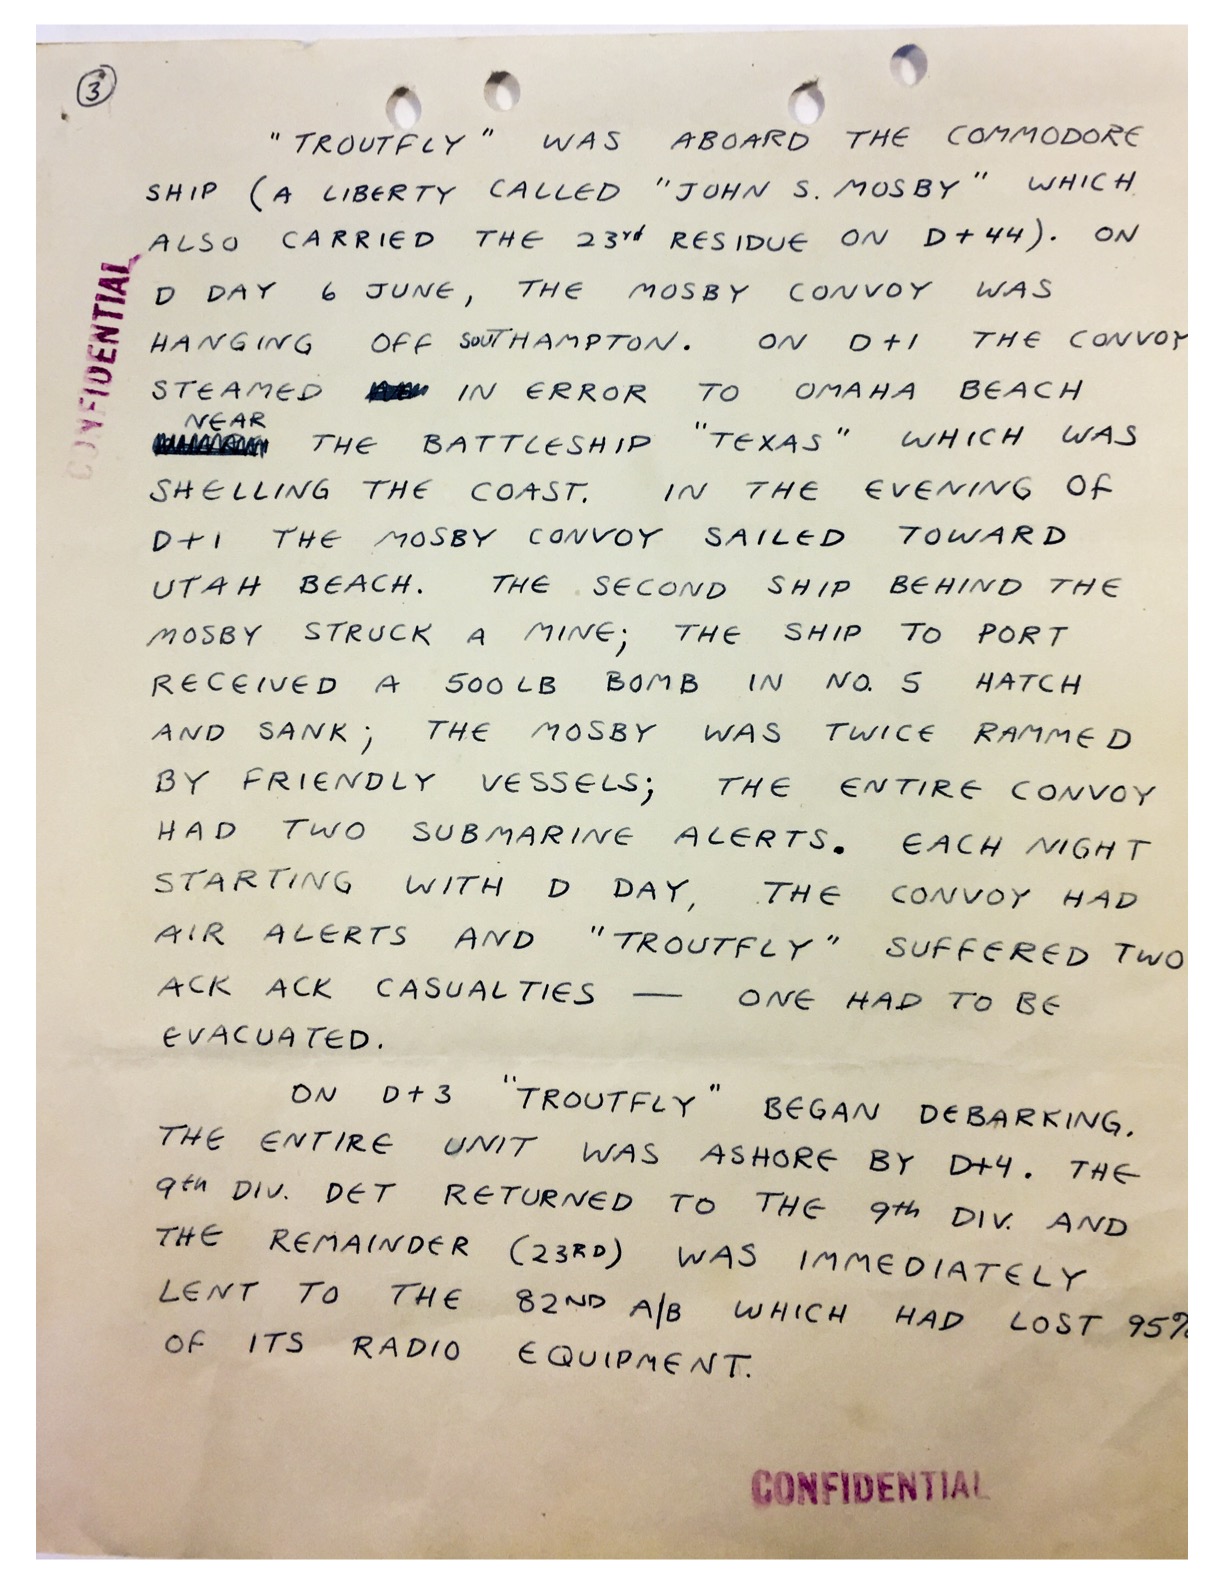 3
"TROUTFLY" WAS ABOARD THE COMMODORE
SHIP (A LIBERTY CALLED "JOHN S. MOSBY" WHICH
ALSO CARRIED THE 23rd RESIDUE ON D+44). ON
D DAY 6 JUNE, THE MOSBY CONVOY WAS
HANGING OFF SOUTHAMPTON. ON D+1 THE CONVOY
STEAMED IN ERROR TO OMAHA BEACH
NEAR
THE BATTLESHIP "TEXAS" WHICH WAS
SHELLING THE COAST. IN THE EVENING OF
D+1 THE MOSBY CONVOY SAILED TOWARD
UTAH BEACH. THE SECOND SHIP BEHIND THE
MOSBY STRUCK A MINE; THE SHIP TO PORT
RECEIVED A 500 LB BOMB IN NO. 5 HATCH
AND SANK; THE MOSBY WAS TWICE RAMMED
BY FRIENDLY VESSELS; THE ENTIRE CONVOY
HAD TWO SUBMARINE ALERTS. EACH NIGHT
STARTING WITH D DAY, THE CONVOY HAD
AIR ALERTS AND "TROUTFLY" SUFFERED TWO
ACK ACK CASUALTIES — ONE HAD TO BE
EVACUATED.
ON D+3 "TROUTFLY" BEGAN DEBARKING.
THE ENTIRE UNIT WAS ASHORE BY D+4. THE
9th DIV. DET RETURNED TO THE 9th DIV. AND
THE REMAINDER (23RD) WAS IMMEDIATELY
LENT TO THE 82ND A/B WHICH HAD LOST 95%
OF ITS RADIO EQUIPMENT.
CONFIDENTIAL
CONFIDENTIAL